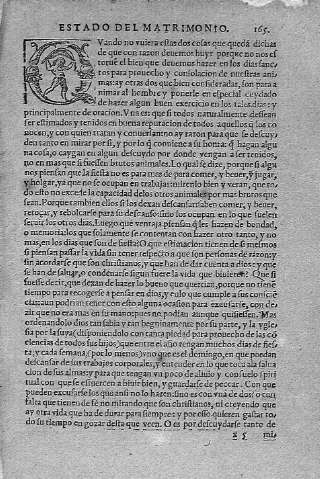 ESTADO DEL MATRIMONIO. 165.
Quando no vuiera estas dos cosas que quedã dichas
de que con razon deuemos huyr porque no nos es
toruẽ el bien que deuemos hazer en los dias sanc-
tos para prouecho y consolacion de nuestras ani-
mas: ay otras dos que bien consideradas, son para a
nimar al hombre y ponerle en especial cuydado
de hazer algun buen exercicio en los tales dias: y
principalmente de oracion. Vna es que si todos naturalmente dessean
ser estimados y tenidos en buena reputacion de todos aquellos q̃ los co
nocen, y con quien tratan y conuersan: no ay razon para que se descuy
den tanto en mirar por si, y por lo q̃ conuiene a su honra: q̃ hagan algu
na cosa, o caygan en algun descuydo por donde vengan a ser tenidos,
no en mas que si fuessen brutos animales. Lo qual se dize, porque si algu
nos piensan que la fiesta no es para mas de para comer, y beuer, y jugar,
y holgar, ya que no se ocupan en trabajar: miren lo bien y veran, que to
do esto no excede la capacidad de los otros animales por mas brutos que
sean. Porque tambien ellos si los dexan descansar saben comer, y beuer,
retoçar, y rebolcarse para su descanso: sino los ocupan en lo que suelen
seruir los otros dias. Luego que ventaja piensan q̃ les hazen de bondad,
o
mas, en los dias que son de fiesta? O que estimacion tienen de si mesmos
si piensan passar la vida sin tener respecto a que son personas de razon: y
sin acordarse que son christianos, y que han de dar cuenta a dios: y que
se han de saluar, o condenarse segun fuere la vida que biuieren? Que si
fuesse dezir, que dexan de hazer lo bueno que querrian, porque no tienẽ
tiempo para recogerse a pensar en dios, y en lo que cumple a sus conciẽ
cias: aun podrian tener con esto alguna ocasion para excusarse, con de-
zir que no era mas en su mano: pues no podian aunque quisiessen. Mas
ordenandolo dios tan sabia y tan benignamente por su parte, y la ygle
sia por la suya: disponiendolo con tanta piedad para prouecho de las cõ
ciencias de todos sus hijos: que entre el año tengan muchos dias de fies
ta, y cada semana (por lo menos) vno que es el domingo, en que puedan
descansar de sus trabajos corporales, y entender en lo que toca a la salua
cion de sus almas: y para que tengan vn poco de aliuio y consuelo spiri
tual con que se esfuercen a biuir bien, y guardarse de peccar. Con que
pueden excusarse los que ansi no lo hazen: sino es con vna de dos: o con
falta que tienen de fé no mirando que son christianos, ni creyendo que
ay otra vida que ha de durar para siempre: y por esso quieren gastar to
do su tiempo en gozar desta que veen. O es por descuydarse tanto de
mis,